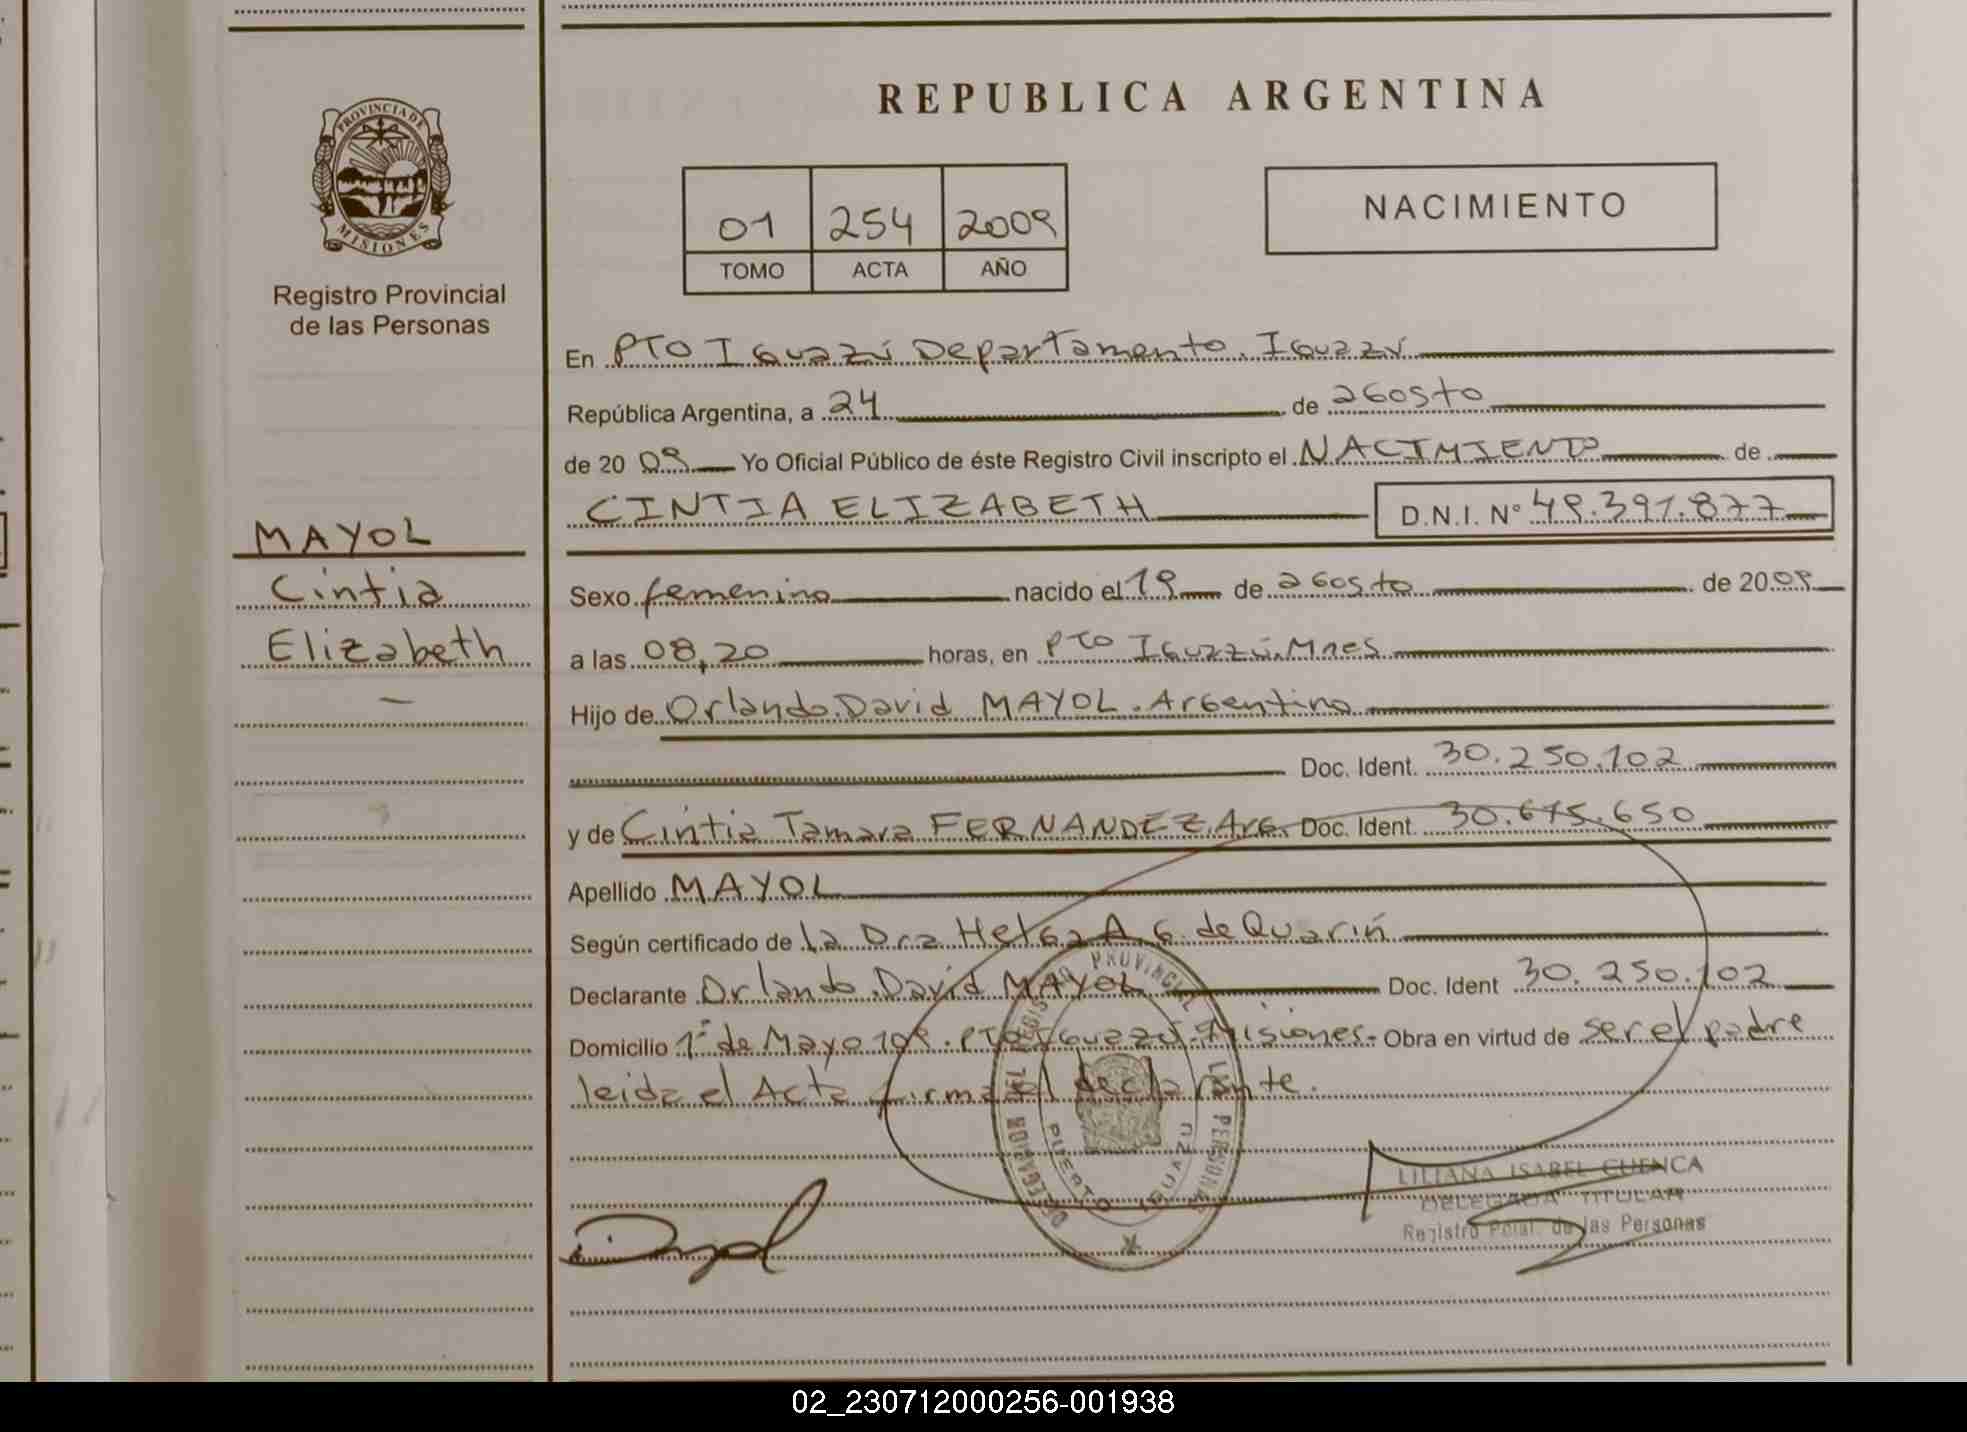 REPUBLICA ARGENTINA
PROVINCIA DE
MISIONES
Registro Provincial
de las Personas
01 254 2009
TOMO ACTA AÑO
NACIMIENTO
En PTO IGuazú Departamento. IGuazú
República Argentina, a 24 de aGosto
de 20 09 Yo Oficial Público de éste Registro Civil inscripto el NACIMIENTO de
CINTIA ELIZABETH D.N.I. N° 49.391.877
MAYOL
Cintia
Elizabeth
Sexo femenino nacido el 19 de aGosto de 2009
a las 08,20 horas, en PTO IGuzzú. Mnes
Hijo de Orlando David MAYOL. ArGentino
Doc. Ident. 30.250.102
y de Cintia Tamara FERNANDEZ. ArG. Doc. Ident. 30.675.650
Apellido MAYOL
Según certificado de la Dra HelGa A G. de Quarin
Declarante Orlando David MAYOL Doc. Ident 30.250.102
Domicilio 1° de Mayo 109. PTO IGuazú. Misiones. Obra en virtud de ser el padre
leida el Acta firma el declarante.
REGISTRO PROVINCIAL DE LAS PERSONAS
DELEGACION
PUERTO IGUAZU
LILIANA ISABEL CUENCA
DELEGADA TITULAR
Registro Pcial. de las Personas
02_230712000256-001938